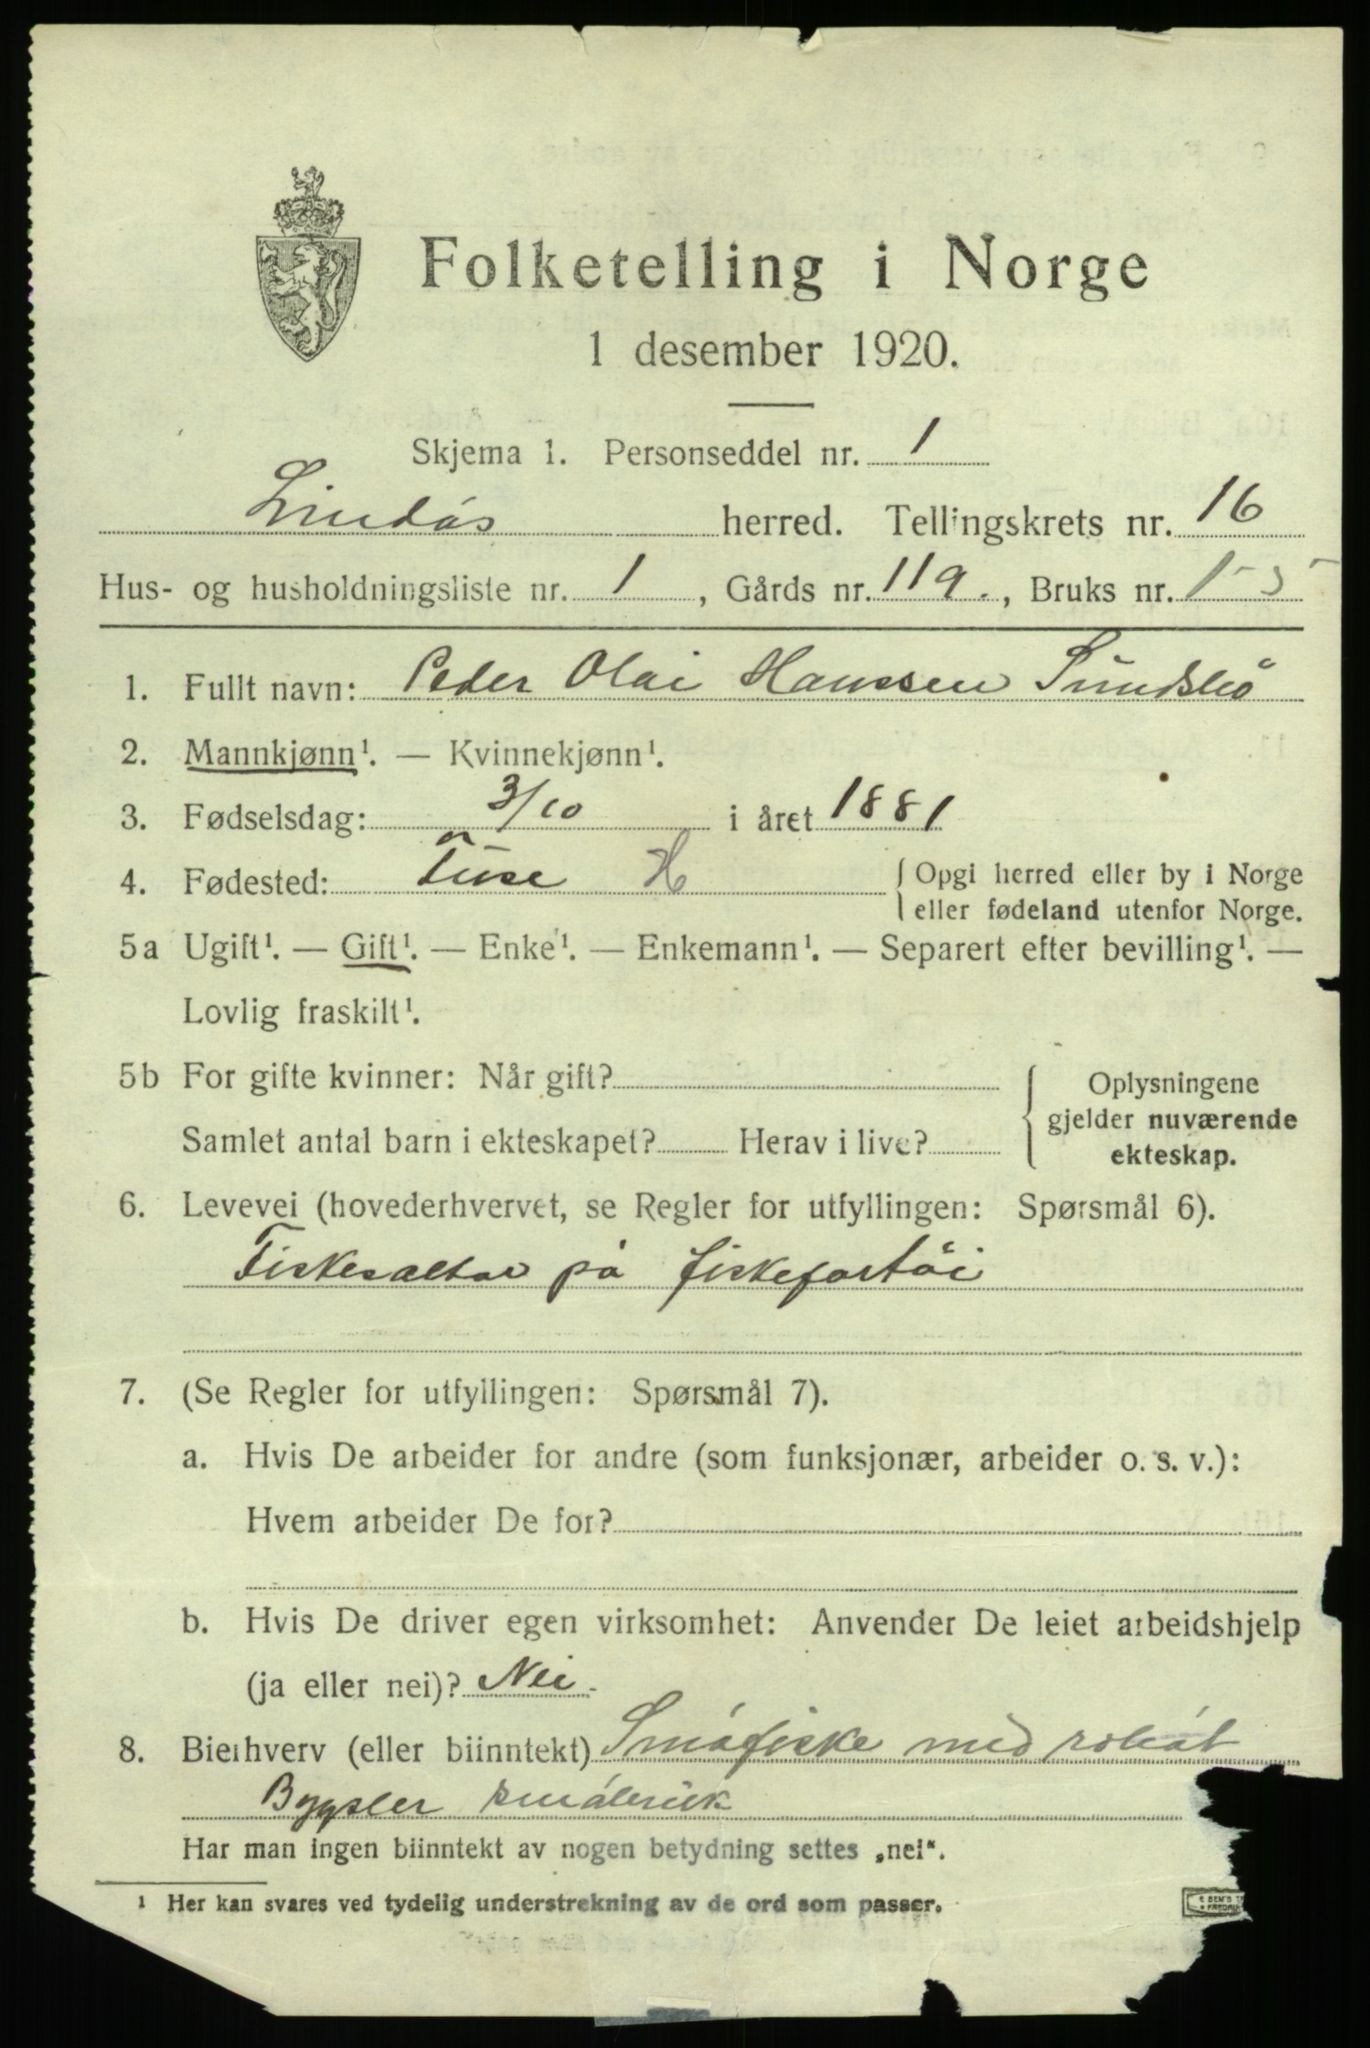 Folketelling i Norge
1 desember 1920.
Skjema 1. Personseddel nr. 1
Lindås herred. Tellingskrets nr. 16
Hus- og husholdningsliste nr. 1, Gårds nr. 119., Bruks nr. 1-5
1. Fullt navn: Peder Olai Hanssen Sundsbö
2. Mannkjønn¹. — Kvinnekjønn¹.
3. Fødselsdag: 3/10 i året 1881
4. Fødested: H { Opgi herred eller by i Norge
eller fødeland utenfor Norge.
5a Ugift¹. — Gift¹. — Enke¹. — Enkemann¹. — Separert efter bevilling¹. —
Lovlig fraskilt¹.
5b For gifte kvinner: Når gift?
Samlet antal barn i ekteskapet? Herav i live?
{ Oplysningene
gjelder nuværende
ekteskap.
6. Levevei (hovederhvervet, se Regler for utfyllingen: Spørsmål 6).
Fiskesalter på fiskefartöi
7. (Se Regler for utfyllingen: Spørsmål 7).
a. Hvis De arbeider for andre (som funksjonær, arbeider o. s. v.):
Hvem arbeider De for?
b. Hvis De driver egen virksomhet: Anvender De leiet arbeidshjelp
(ja eller nei)? Nei.
8. Bierhverv (eller biinntekt) Småfiske med robåt
Bygsler småbruk
Har man ingen biinntekt av nogen betydning settes „nei“.
¹ Her kan svares ved tydelig understrekning av de ord som passer.